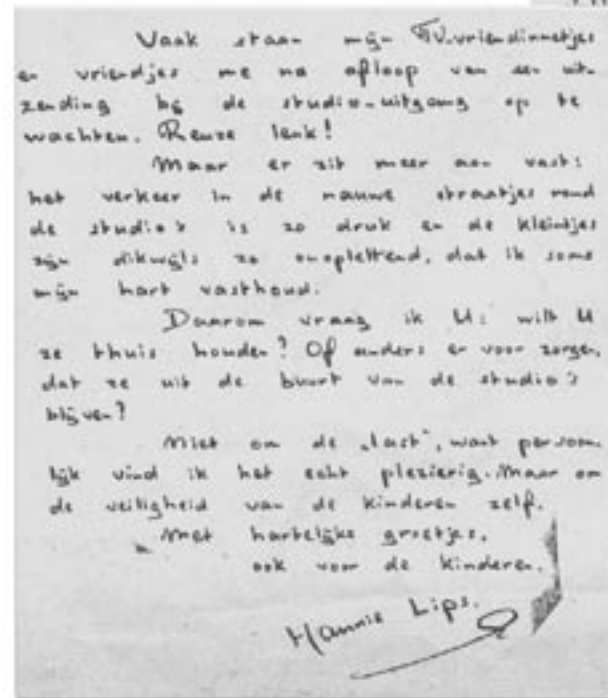 Vaak staan mijn TV.vriendinnetjes
en vriendjes me na afloop van een uit-
zending bij de studio-uitgang op te
wachten. Reuze leuk!
Maar er zit meer aan vast:
het verkeer in de nauwe straatjes rond
de studio's is zo druk en de kleintjes
zijn dikwijls zo onoplettend, dat ik soms
mijn hart vasthoud.
Daarom vraag ik U: wilt U
ze thuis houden? Of anders er voor zorgen,
dat ze uit de buurt van de studio's
blijven?
Niet om de "last", want persoon-
lijk vind ik het echt plezierig. Maar om
de veiligheid van de kinderen zelf.
Met hartelijke groetjes,
ook voor de kinderen.
Hannie Lips.